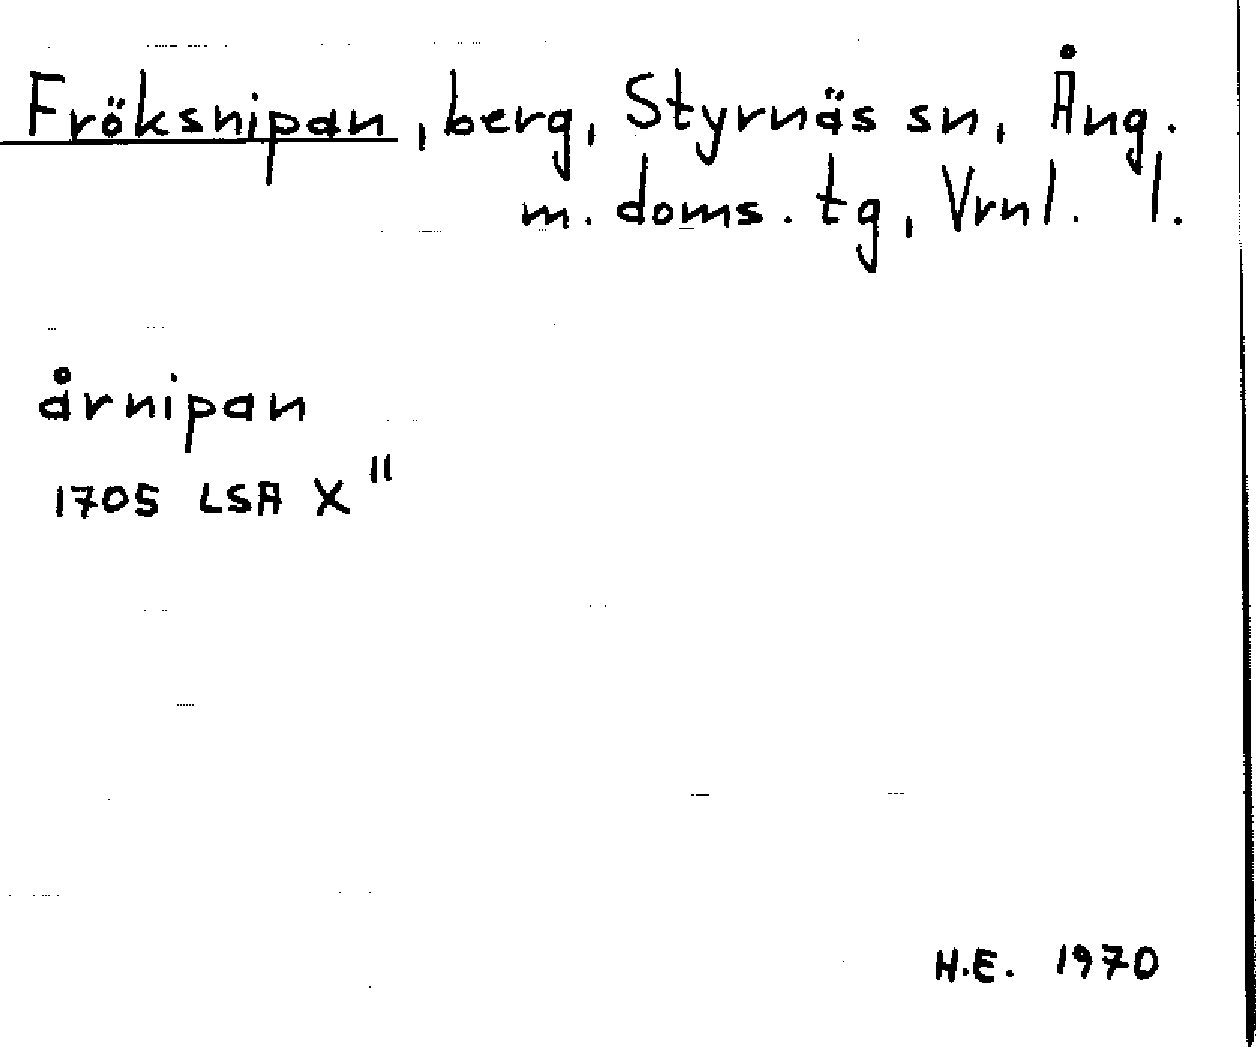 Fröksnipan, berg, Styrnäs sn, Ång.
m. doms. tg, Vrnl. l.
årnipan
1705 LSA X"
H.E. 1970